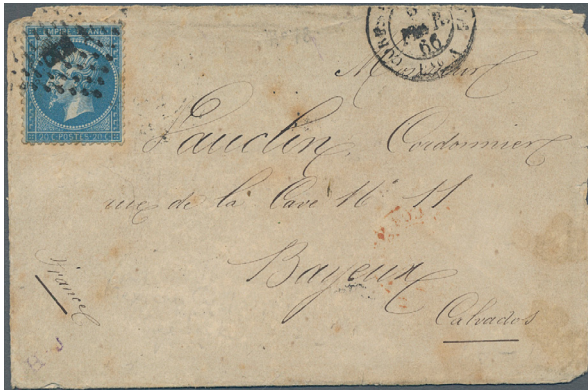 EMPIRE FRANC
20 C POSTES 20 C
CORR.
66
Monsieur
Vauclin, Cordonnier
rue de la Cave N° 11
Bayeux
Calvados
France